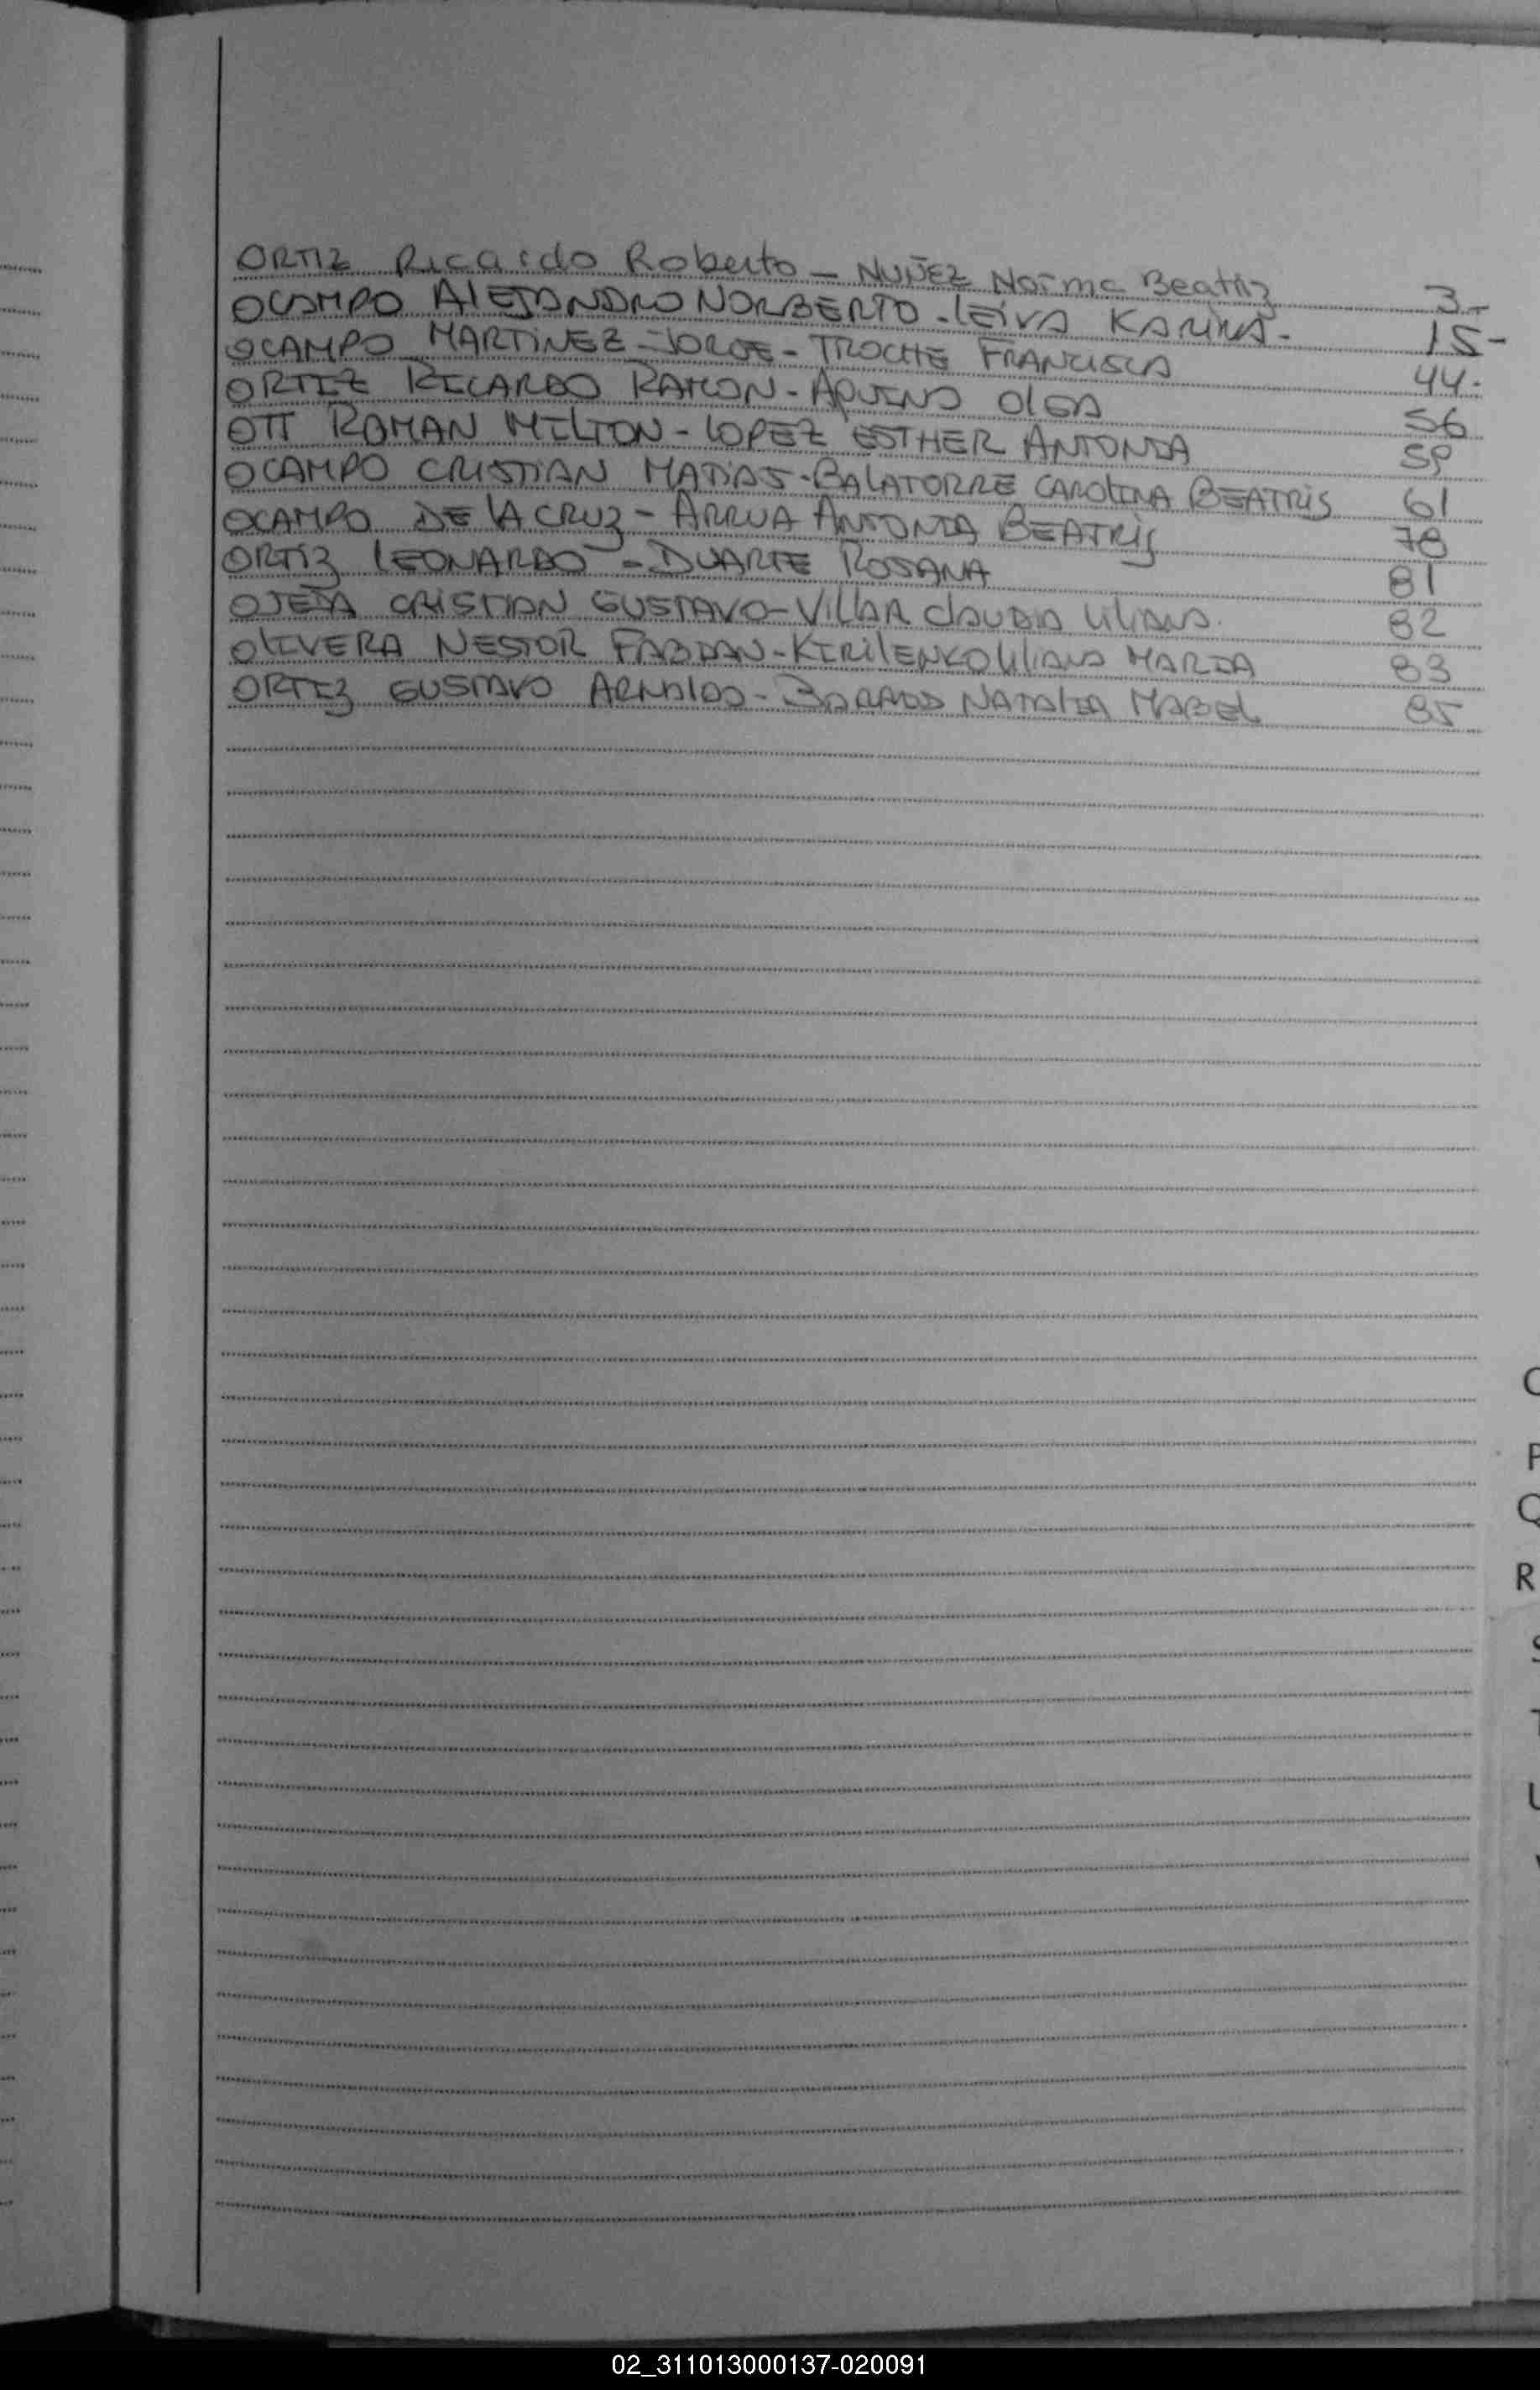 ORTIZ Ricardo Roberto - NUÑEZ Norma Beatriz 3-
OCAMPO ALEJANDRO NORBERTO - LEIVA KARINA - 15-
OCAMPO MARTINEZ - JORGE - TROCHE FRANCISCA 44-
ORTIZ RICARDO RAMON - AQUINO OLGA 56
OTT ROMAN MILTON - LOPEZ ESTHER ANTONIA
OCAMPO CRISTIAN MATIAS - BALATORRE CAROLINA BEATRIS 61
OCAMPO DE LA CRUZ - ARRUA ANTONIA BEATRIS 78
ORTIZ LEONARDO - DUARTE ROSANA 81
OJEDA CRISTIAN GUSTAVO - VILLAR CLAUDIA LILIANA. 82
OLIVERA NESTOR FABIAN - KIRILENKO LILIANA MARIA 83
ORTIZ GUSTAVO ARNALDO - NATALIA MABEL 85
P
Q
R
S
T
U
02_311013000137-020091